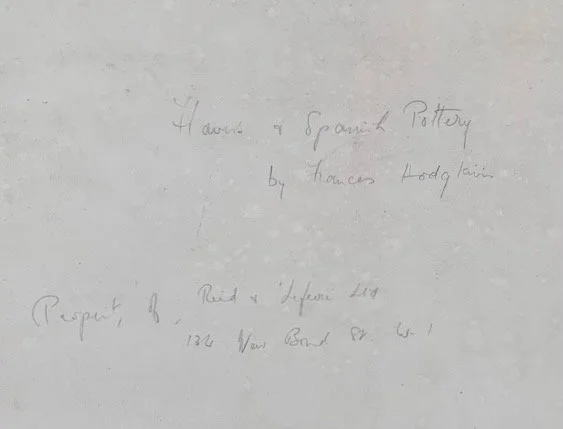 Flowers & Spanish Pottery
by Frances Hodgkins
Property of, Reid & Lefevre Ltd
134 New Bond St. W.1